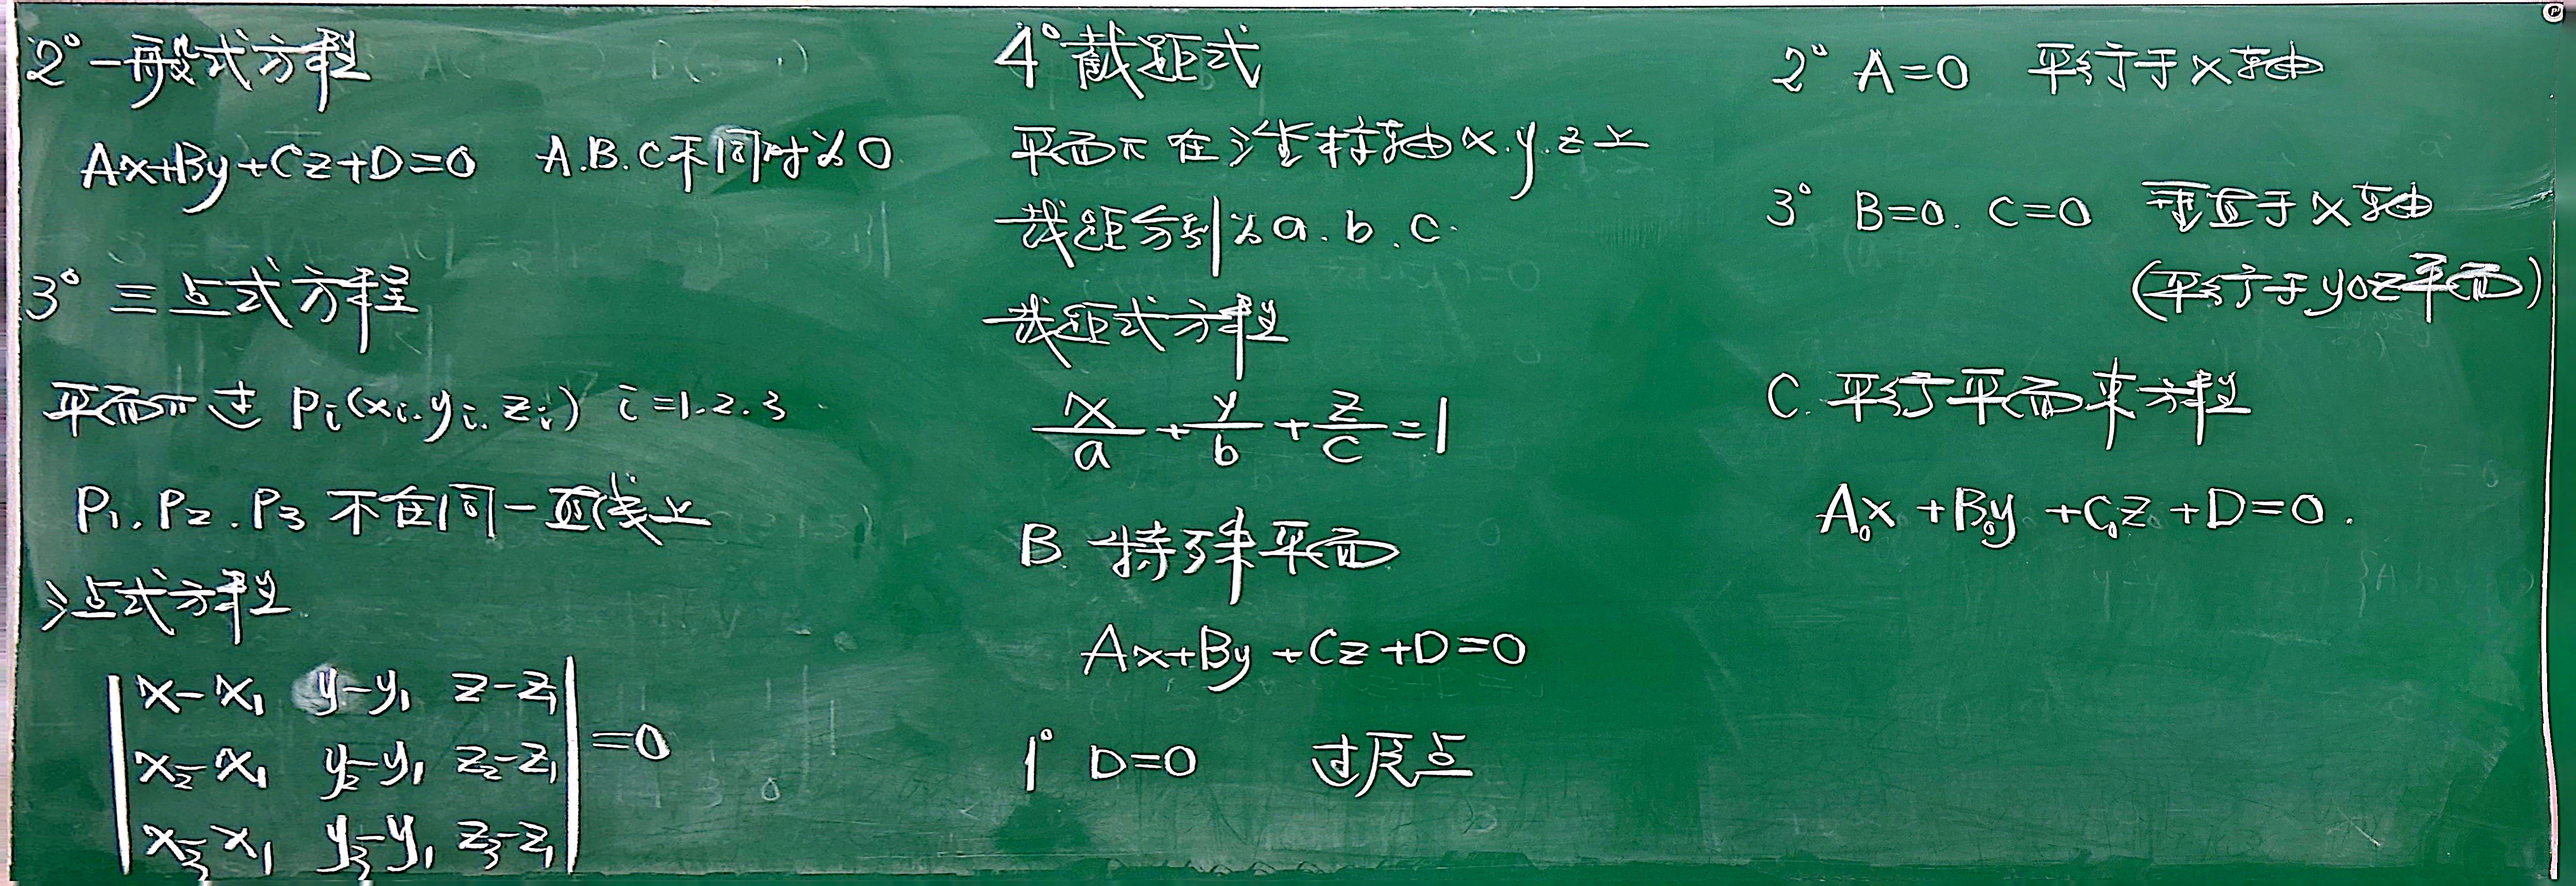 2° 一般式方程
Ax+By+Cz+D=0 A.B.C不同时为0
3° 三点式方程
平面π过 P_i(x_i.y_i.z_i) i=1.2.3
P₁.P₂.P₃ 不在同一直线上
三点式方程
| x-x₁ y-y₁ z-z₁ |
| x₂-x₁ y₂-y₁ z₂-z₁ | =0
| x₃-x₁ y₃-y₁ z₃-z₁ |
4° 截距式
平面π在坐标轴x.y.z上
截距分别为a.b.c.
截距式方程
x/a + y/b + z/c = 1
B. 特殊平面
Ax+By+Cz+D=0
1° D=0 过原点
2° A=0 平行于x轴
3° B=0. C=0 垂直于x轴
(平行于yoz平面)
C. 平行平面束方程
A₀x+B₀y+C₀z+D=0.